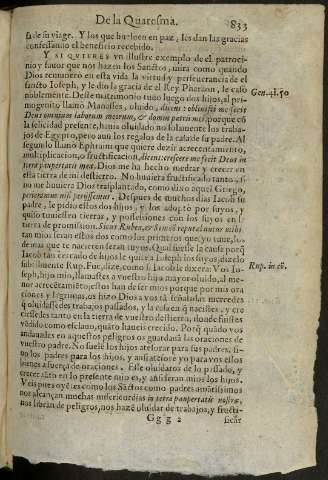 De la Quaresma. 833
sa de su viage. Y los que bueluen en paz, les dan las gracias
confessando el beneficio recebido.
Y SI QVEREYS vn illustre exemplo de el patroci-
nio y fauor que nos hazen los Sanctos, mira como quando
Dios remunerò en esta vida la virtud y perseuerancia de el
sancto Ioseph, y le dio la gracia de el Rey Pharaon, le casò
noblemente. Deste matrimonio tuuo luego dos hijos, al pri-
Gen. 41. 50
mogenito llamò Manasses, oluido, dicens: obliuisci me fecit
Deus omnium laborum meorum, & domus patris mei: porque cõ
la felicidad presente, hauia oluidado no solamente los traba-
jos de Egypto, pero aun los regalos de la casa de su padre. Al
segundo llamò Ephraim que quiere dezir acrecentamiento,
multiplicacion, o fructificacion, dicens: crescere me fecit Deus in
terra paupertatis meæ. Dios me ha hecho medrar y crecer en
esta tierra de mi destierro. No huuiera fructificado tanto, si
no me huuiera Dios trasplantado, como dixo aquel Griego,
perieramus nisi perissemus. Despues de muchos dias Iacob su
padre, le pidio estos dos hijos, y los adoptò por suyos, y
quiso tuuiessen tierras, y possessiones con los suyos en la
tierra de promission. Sicut Ruben, & Simeon reputabuntur mihi.
tan mios seran estos dos como los primeros que yo tuue, los
de mas que te nacieren seran tuyos. Qual fuesse la causa porq̃
Iacob tan cercado de hijos le quite a Ioseph los suyos, dizelo
Rup. in cũ.
subtilmente Rup. Fue, dize, como si Iacob le dixera: Vos Io-
seph, hijo mio, llamastes a vuestro hijo mayor oluido, al me-
nor acrecẽtamiẽto; estos han de ser mios porque por mis ora
ciones y lagrimas, os hizo Dios a vos tã señaladas mercedes
q̃ oluidassedes trabajos passados, y la casa en q̃ nacistes, y cre
ciessedes tanto en la tierra de vuestro destierro, donde fuistes
vẽdido como esclauo, quãto haueis crecido. Porq̃ quãdo vos
andauades en aquellos peligros os guardauã las oraciones de
vuestro padre. No suelẽ los hijos atesorar para sus padres, si-
no los padres para los hijos, y assi atesore yo para vos estos
bienes a fuerça de oraciones. Esse oluidaros de lo passado, y
crecer tãto en lo presente mio es, y assi seran mios los hijos.
Veis pues oyẽtes como los Sãctos como padres amãtissimos
nos alcançan muchas misericordias in terra paupertatis nostræ,
nos libran de peligros, nos hazẽ oluidar de trabajos, y fructi-
G g g 2 ficar